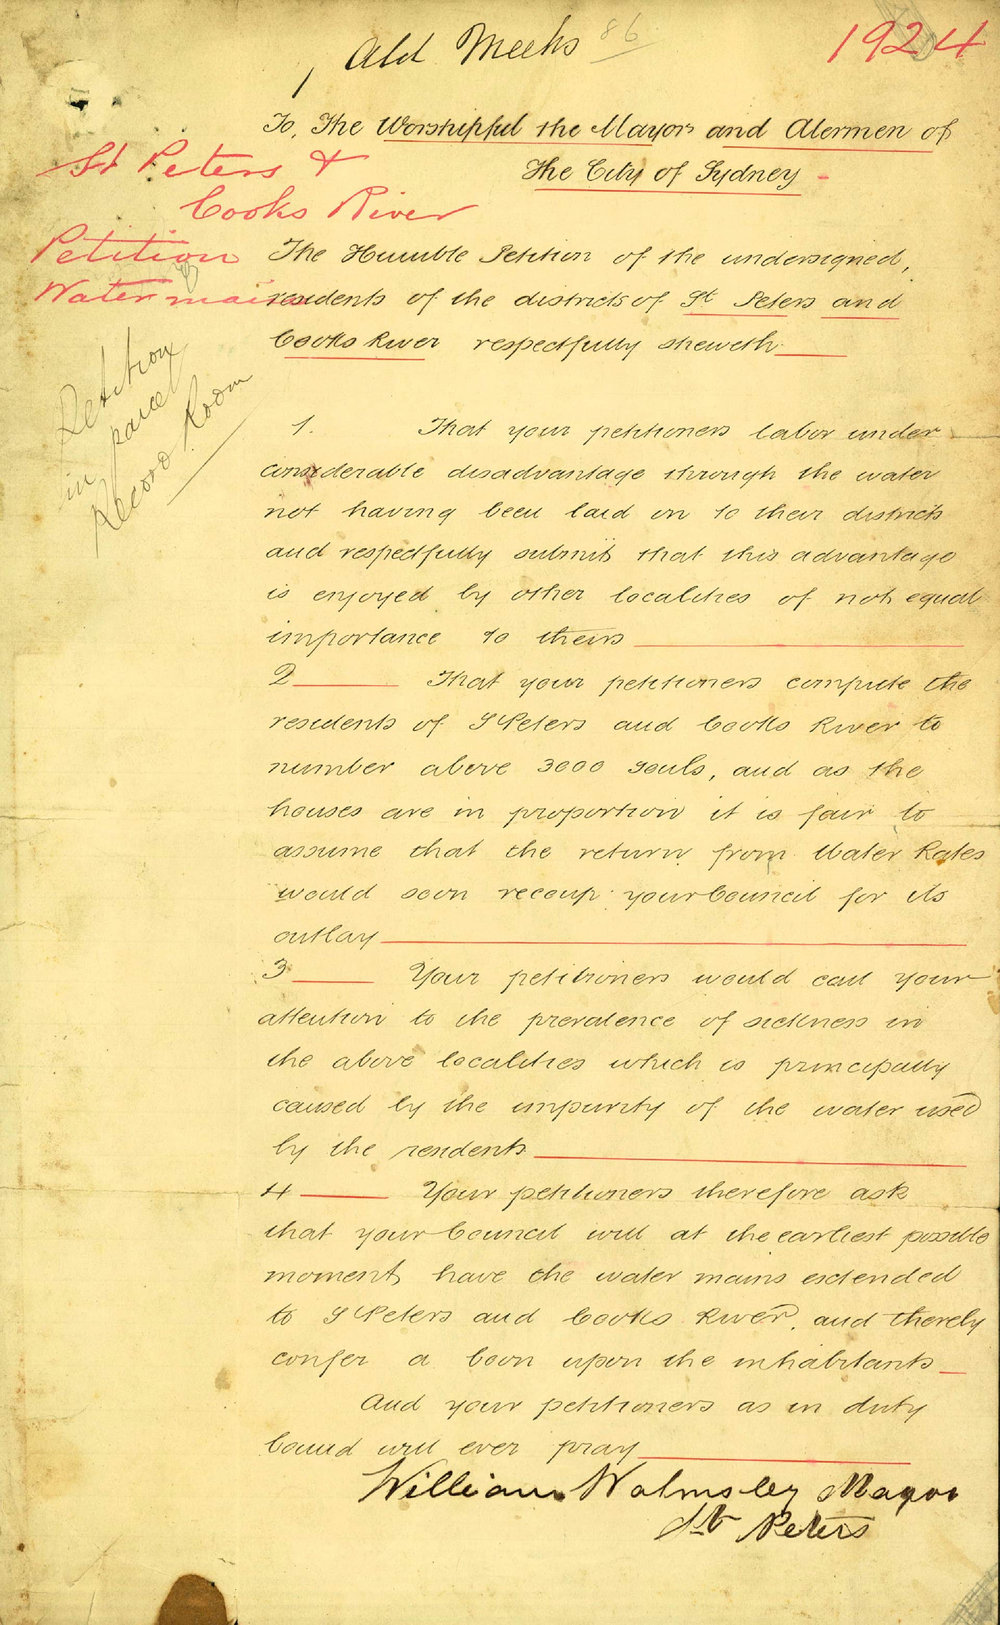 Ald Meeks 86
1924
To, The Worshipful the Mayor and Alermen of
The City of Sydney
St Peters &
Cooks River
Petition
Water mains
Petition
in parcel
Record Room
The Humble Petition of the undersigned,
residents of the districts of St Peters and
Cooks River respectfully sheweth
1. That your petitioners labor under
considerable disadvantage through the water
not having been laid on to their districts
and respectfully submit that this advantage
is enjoyed by other localities of not equal
importance to theirs
2 That your petitioners compute the
residents of St Peters and Cooks River to
number above 3000 souls, and as the
houses are in proportion it is fair to
assume that the return from Water Rates
would soon recoup your Council for its
outlay
3 Your petitioners would call your
attention to the prevalence of sickness in
the above localities which is principally
caused by the impurity of the water used
by the residents
4 Your petitioners therefore ask
that your Council will at the earliest possible
moment, have the water mains extended
to St Peters and Cooks River, and thereby
confer a boon upon the inhabitants
And your petitioners as in duty
bound will ever pray
William Walmsley Mayor
St Peters